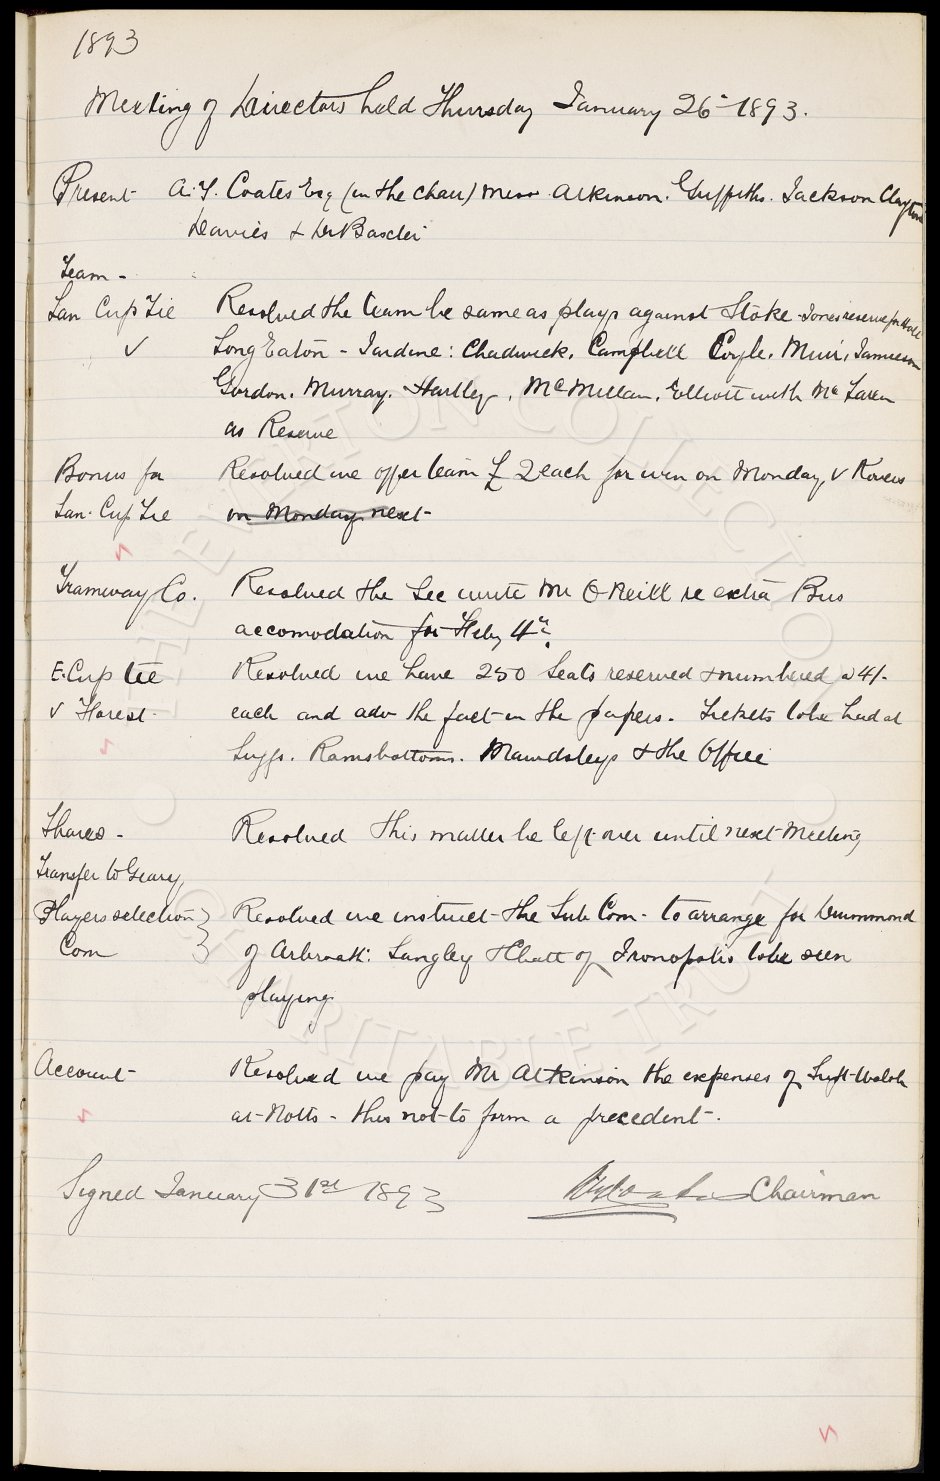 1893
Meeting of Directors held Thursday January 26th 1893.
Present A.T. Coates Esq (in the chair) Messrs Atkinson. Griffiths. Jackson Clayton
Davies & Dr Baxter
Team -
Lan Cup Tie Resolved the team be same as plays against Stoke - Jones reserve for Holt
✓ Long Eaton - Jardine: Chadwick. Campbell Coyle. Muir. Jamieson
Gordon. Murray. Hartley. McMillan. Elliott with McLaren
as Reserve
Bonus for Resolved we offer team £2 each for win on Monday, v Rovers
Lan. Cup Tie on Monday next
Tramway Co. Resolved the Sec write Mr O'Neill re extra Bus
accomodation for Feby 4th.
E. Cup tie Resolved we have 250 Seats reserved & numbered @ 4/-
v Forest each and adv the fact in the papers. Tickets to be had at
Suggs. Ramsbottoms. Mawdsleys & the Office
Shares - Resolved this matter be left over until next Meeting
Transfer to Geary,
Players selection Resolved we instruct the Sub Com - to arrange for Drummond
Com of Arbroath: Langley & Chatt of Ironopolis to be seen
playing.
Account Resolved we pay Mr Atkinson the expenses of Welsh
at Notts - this not to form a precedent.
Signed January 31st 1893 Chairman
THE EVERTON COLLECTION
CHARITABLE TRUST